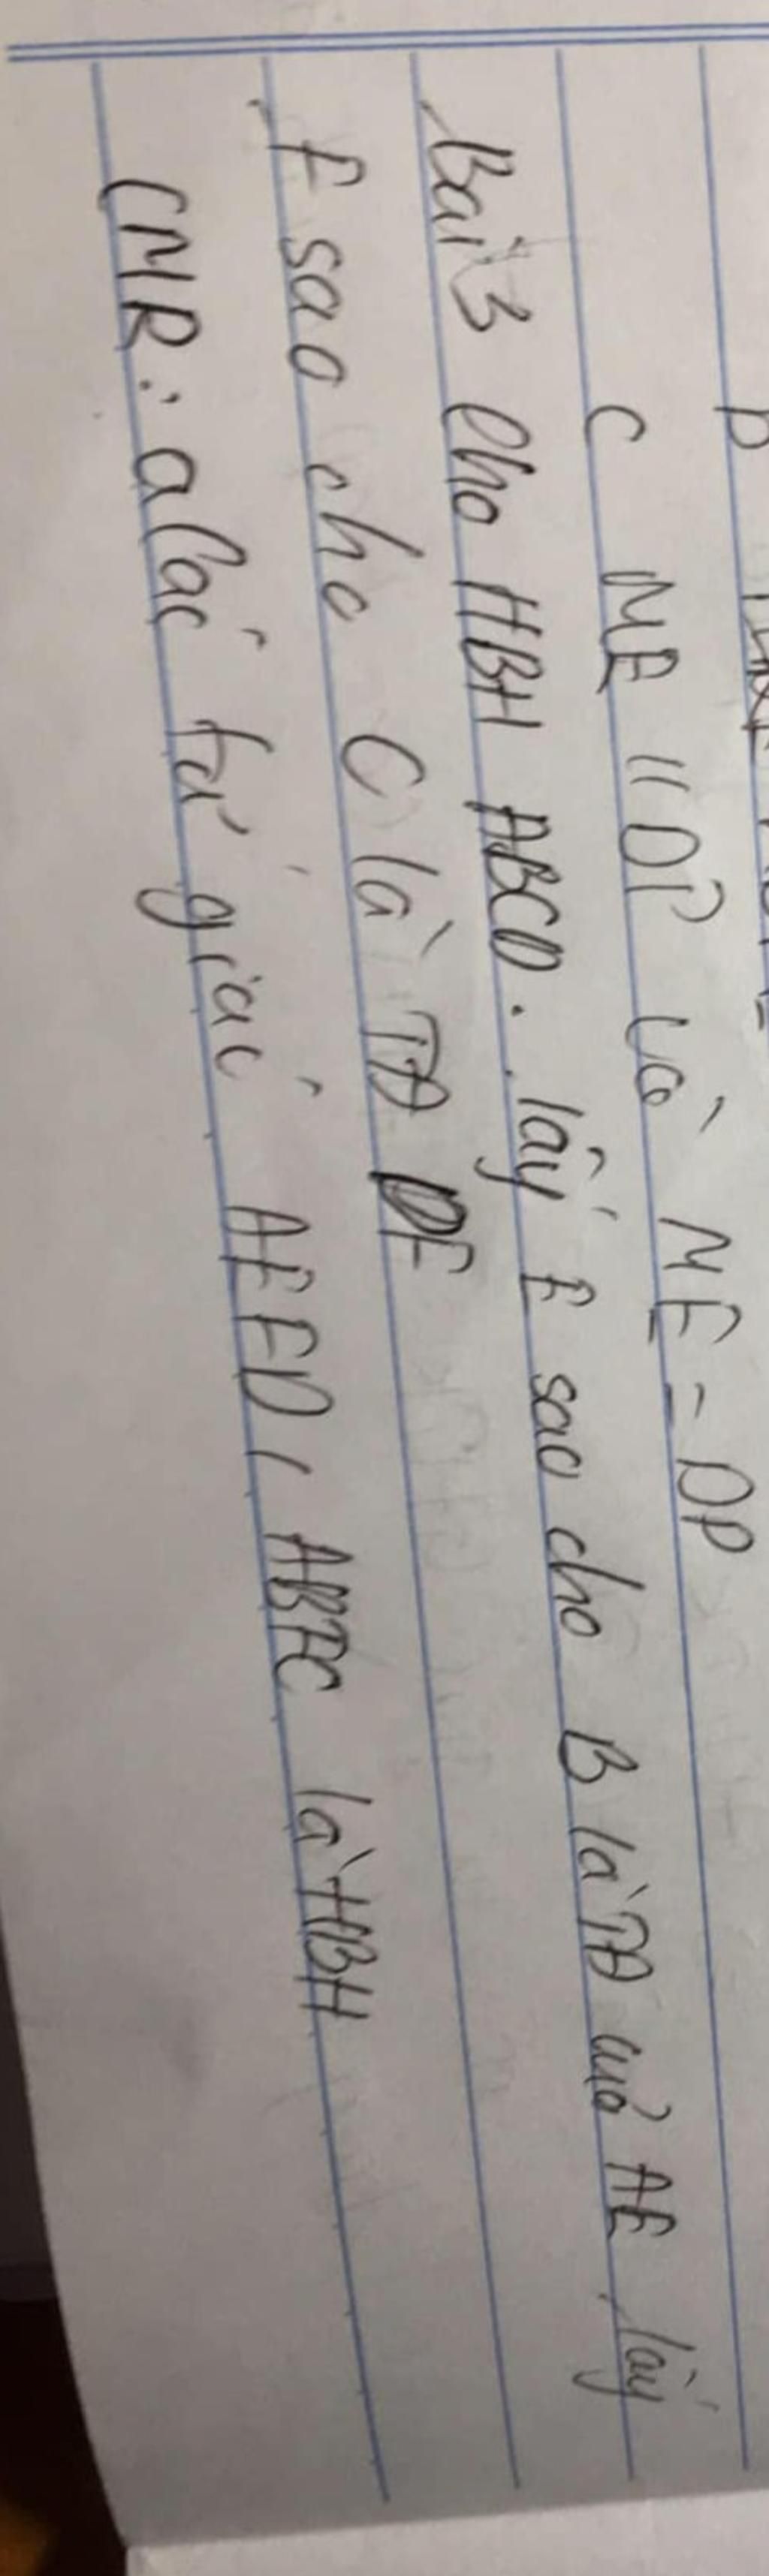 C ME // DP và ME = DP
Bài 3 Cho HBH ABCD. lấy E sao cho B là TĐ của AE, lấy
F sao cho C là TĐ DF
CMR: a) các tứ giác AEFD, ABFC là HBH